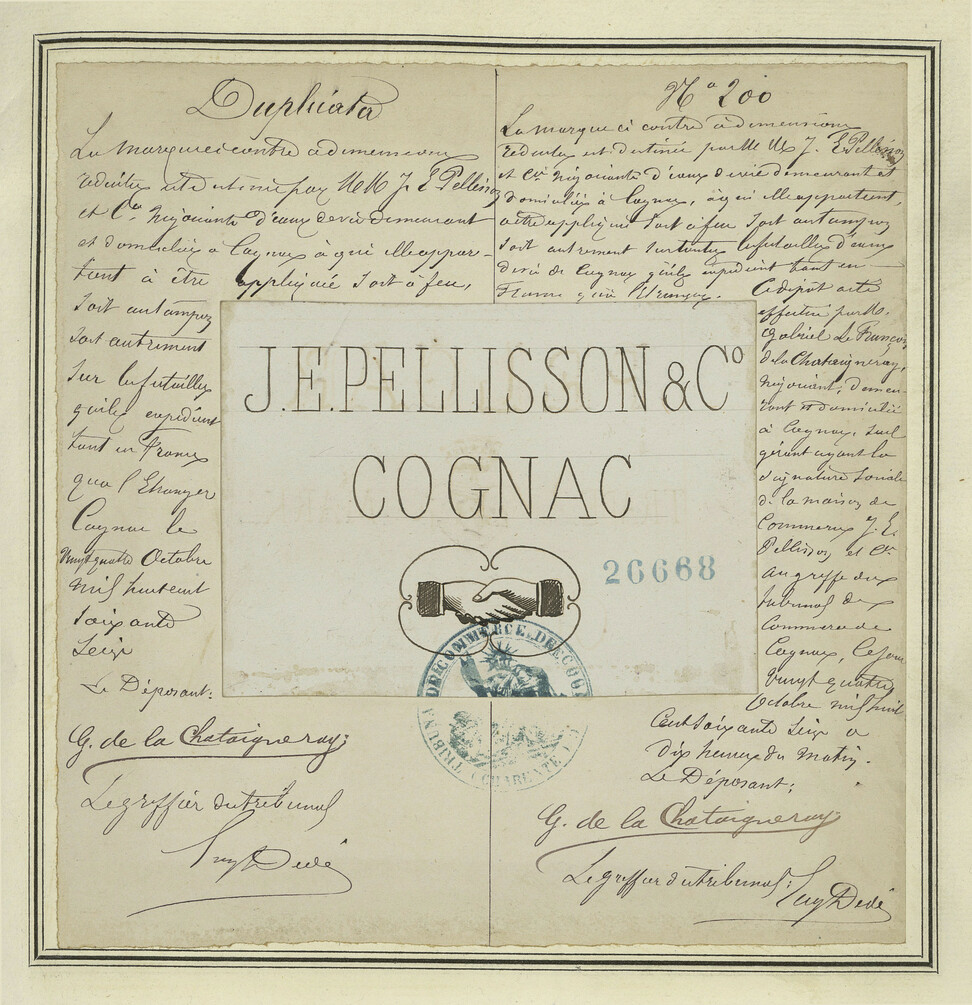 Duplicata
La marque ci contre à dimensions
réduites est destinée par MM J. E Pellisson
et Cie Négociants d'eaux de vie demeurant
et domiciliés à Cognac à qui elle appar-
tient à être appliquée soit à feu,
soit au tampon
soit autrement
sur les futailles
qu'ils expédient
tant en France
qu'a l'Etranger
Cognac le
vingt quatre Octobre
mil huit cent
soixante
seize
Le Déposant:
G. de la Chataigneray;
Le greffier du tribunal
No 200
La marque ci contre à dimensions
réduites est destinée par MM J. E Pellisson
et Cie Négociants d'eaux de vie demeurant et
domiciliés à Cognac, à qui elle appartient,
à être appliquée soit à feu soit au tampon
soit autrement sur toutes les futailles d'eaux
de vie de Cognac qu'ils expédient tant en
France qu'à l'Etranger.
Ce dépôt a été
effectué par M.
Gabriel Le François
de la Chataigneray,
négociant, demeu
rant et domicilié
à Cognac, seul
gérant ayant la
signature sociale
de la maison de
Commerce J. E.
Pellisson et Cie
au greffe du
tribunal de
Commerce de
Cognac, le jour
vingt quatre
Octobre mil huit
Cent soixante seize à
dix heures du matin.
Le Déposant;
G. de la Chataigneray
Le greffier du tribunal;
J.E.PELLISSON & Co
COGNAC
26668
TRIBUNAL DE COMMERCE DE COGNAC
(CHARENTE)